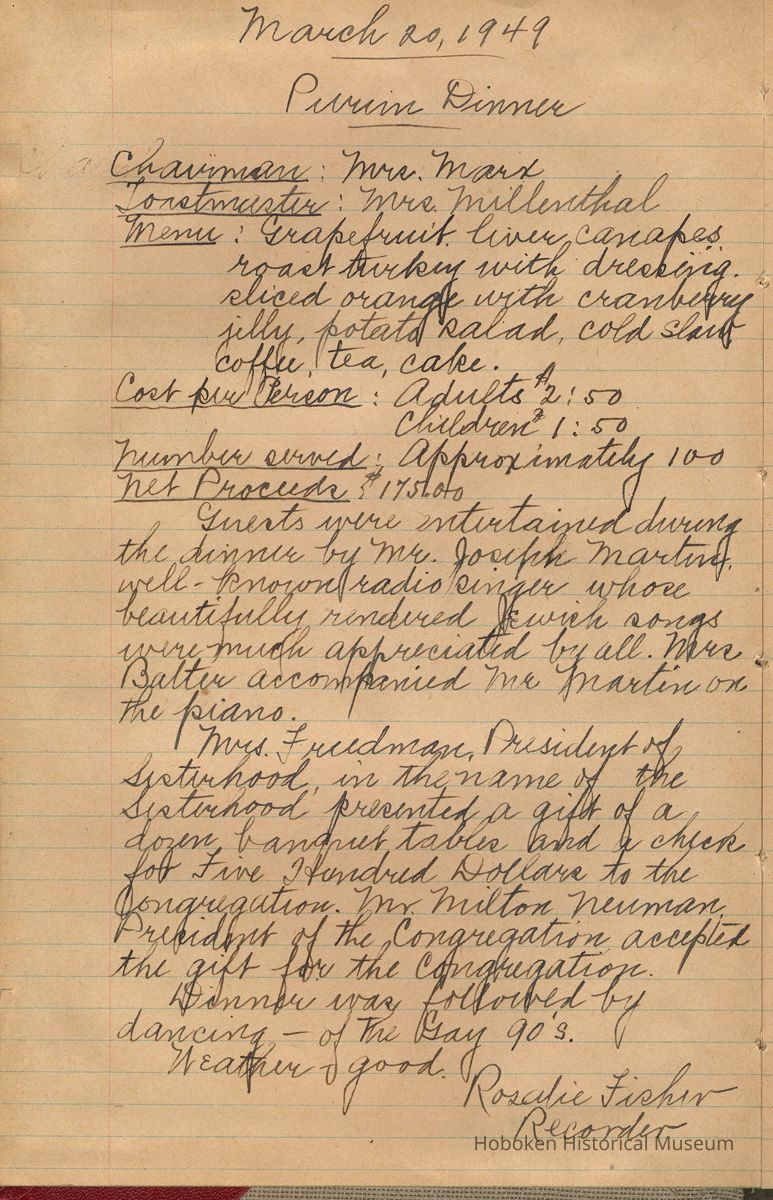 March 20, 1949
Purim Dinner
Chairman: Mrs. Marx
Toastmaster: Mrs. Millenthal
Menu: Grapefruit. liver canapes
roast turkey with dressing.
sliced orange with cranberry
jelly, potato salad, cold slaw
coffee, tea, cake.
Cost per Person: Adults $2:50
Children $1:50
Number served: Approximately 100
Net Proceeds: $175.00
Guests were entertained during
the dinner by Mr. Joseph Martin,
well-known radio singer whose
beautifully rendered Jewish songs
were much appreciated by all. Mrs
Balter accompanied Mr Martin on
the piano.
Mrs. Friedman, President of
Sisterhood, in the name of the
Sisterhood presented a gift of a
dozen banquet tables and a check
for Five Hundred Dollars to the
Congregation. Mr. Milton Neuman,
President of the Congregation accepted
the gift for the Congregation.
Dinner was followed by
dancing – of the Gay 90's.
Weather – good.
Rosalie Fisher
Recorder
Hoboken Historical Museum